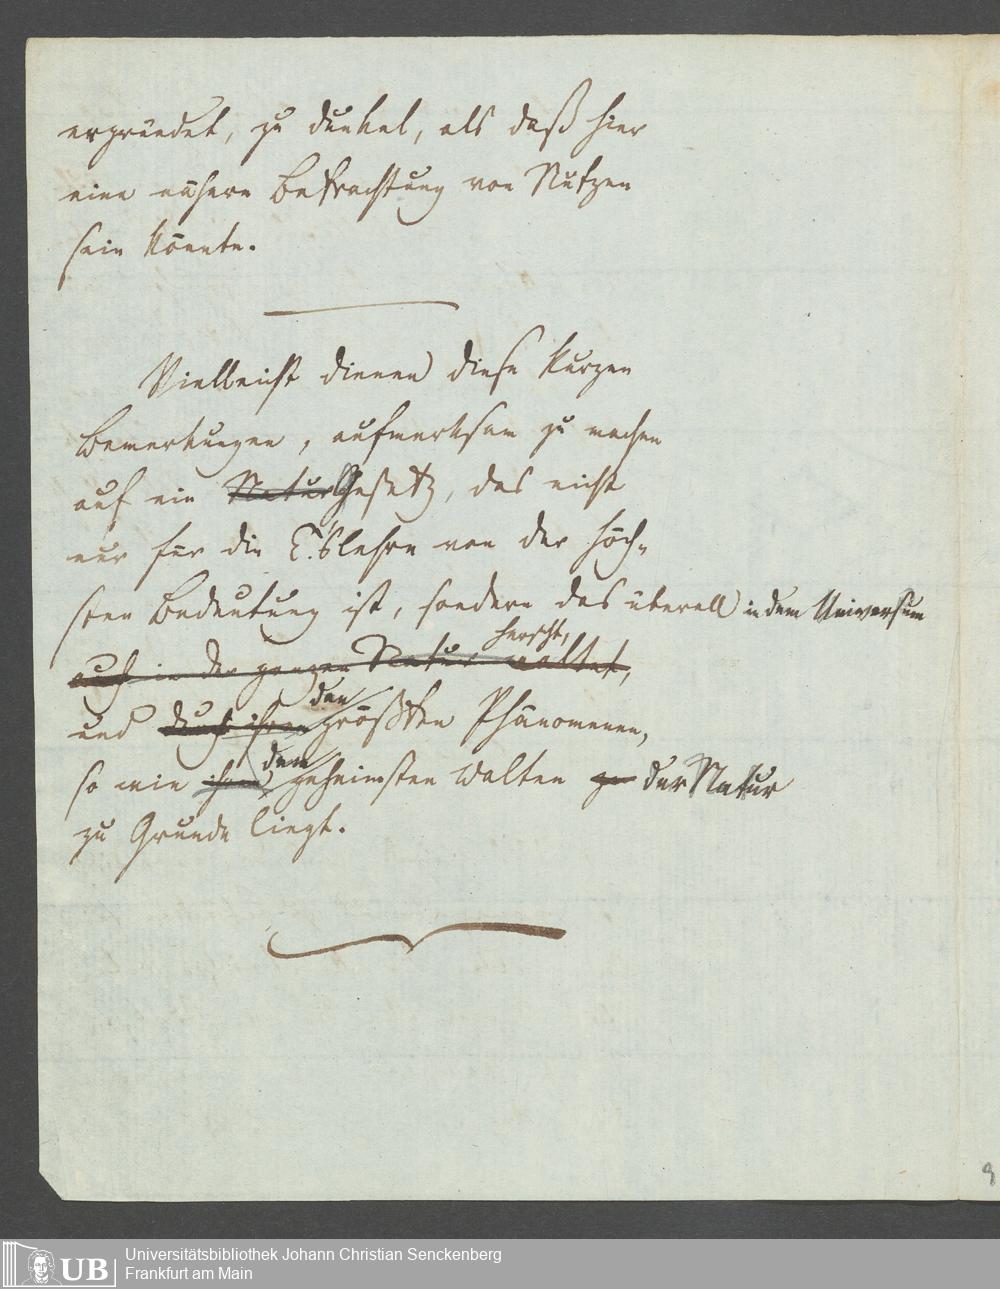 ergründet, zu dunkel, als daß hier
eine nähere Betrachtung von Nutzen
sein könnte.
Vielleicht dienen diese kurzen
Bemerkungen, aufmerksam zu machen
auf ein Natur Gesetz, das nicht
nur für die lehre von der höch-
sten Bedeutung ist, sondern das überall in dem Universum
herscht,
auch in der ganzen Natur waltet,
den
und durch ihren größten Phänomenen,
dem
so wie ihrem geheimsten Walten zu der Natur
zu Grunde liegt.
9
UB
Universitätsbibliothek Johann Christian Senckenberg
Frankfurt am Main